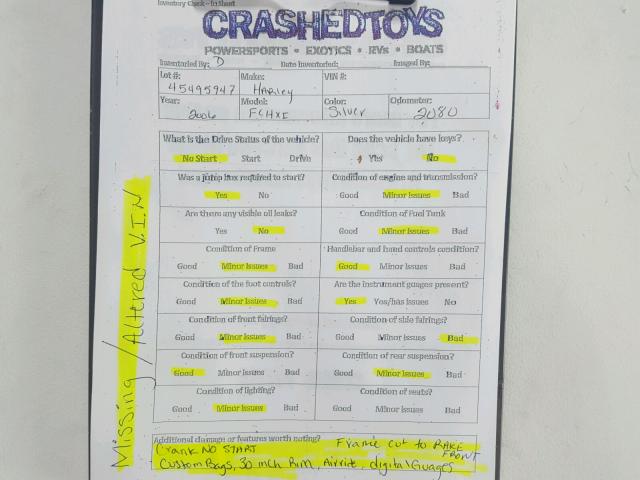 Inventory Check - In Sheet
CRASHEDTOYS
POWERSPORTS • EXOTICS • RVs • BOATS
Inventoried By: D Date Inventoried: Imaged By:
Lot #: 45495947 Make: Harley VIN #:
Year: 2006 Model: FLHXI Color: Silver Odometer: 2080
What is the Drive Status of the vehicle? Does the vehicle have keys?
No Start Start Drive Yes No
Was a jump box required to start? Condition of engine and transmission?
Yes No Good Minor Issues Bad
Are there any visible oil leaks? Condition of Fuel Tank
Yes No Good Minor Issues Bad
Condition of Frame Handlebar and hand controls condition?
Good Minor Issues Bad Good Minor Issues Bad
Condition of the foot controls? Are the instrument guages present?
Good Minor Issues Bad Yes Yes/has issues No
Condition of front fairings? Condition of side fairings?
Good Minor Issues Bad Good Minor Issues Bad
Condition of front suspension? Condition of rear suspension?
Good Minor Issues Bad Good Minor Issues Bad
Condition of lighting? Condition of seats?
Good Minor Issues Bad Good Minor Issues Bad
Additional damage or features worth noting?
Crank NO START Frame cut to RAKE FRONT
Custom Bags, 30 inch Rim, Airride, digital Guages
Missing / Altered V.I.N